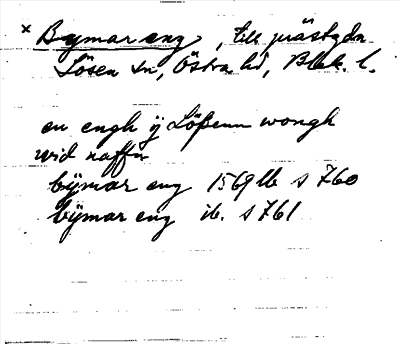 × Bymar eng, till prästgdn
Lösen sn, Östra hd, Blek. l.
en engh ÿ Lößenn wongh
wid naffn
bÿmar eng 1569 lb s 760
bÿmar eng ib. s 761